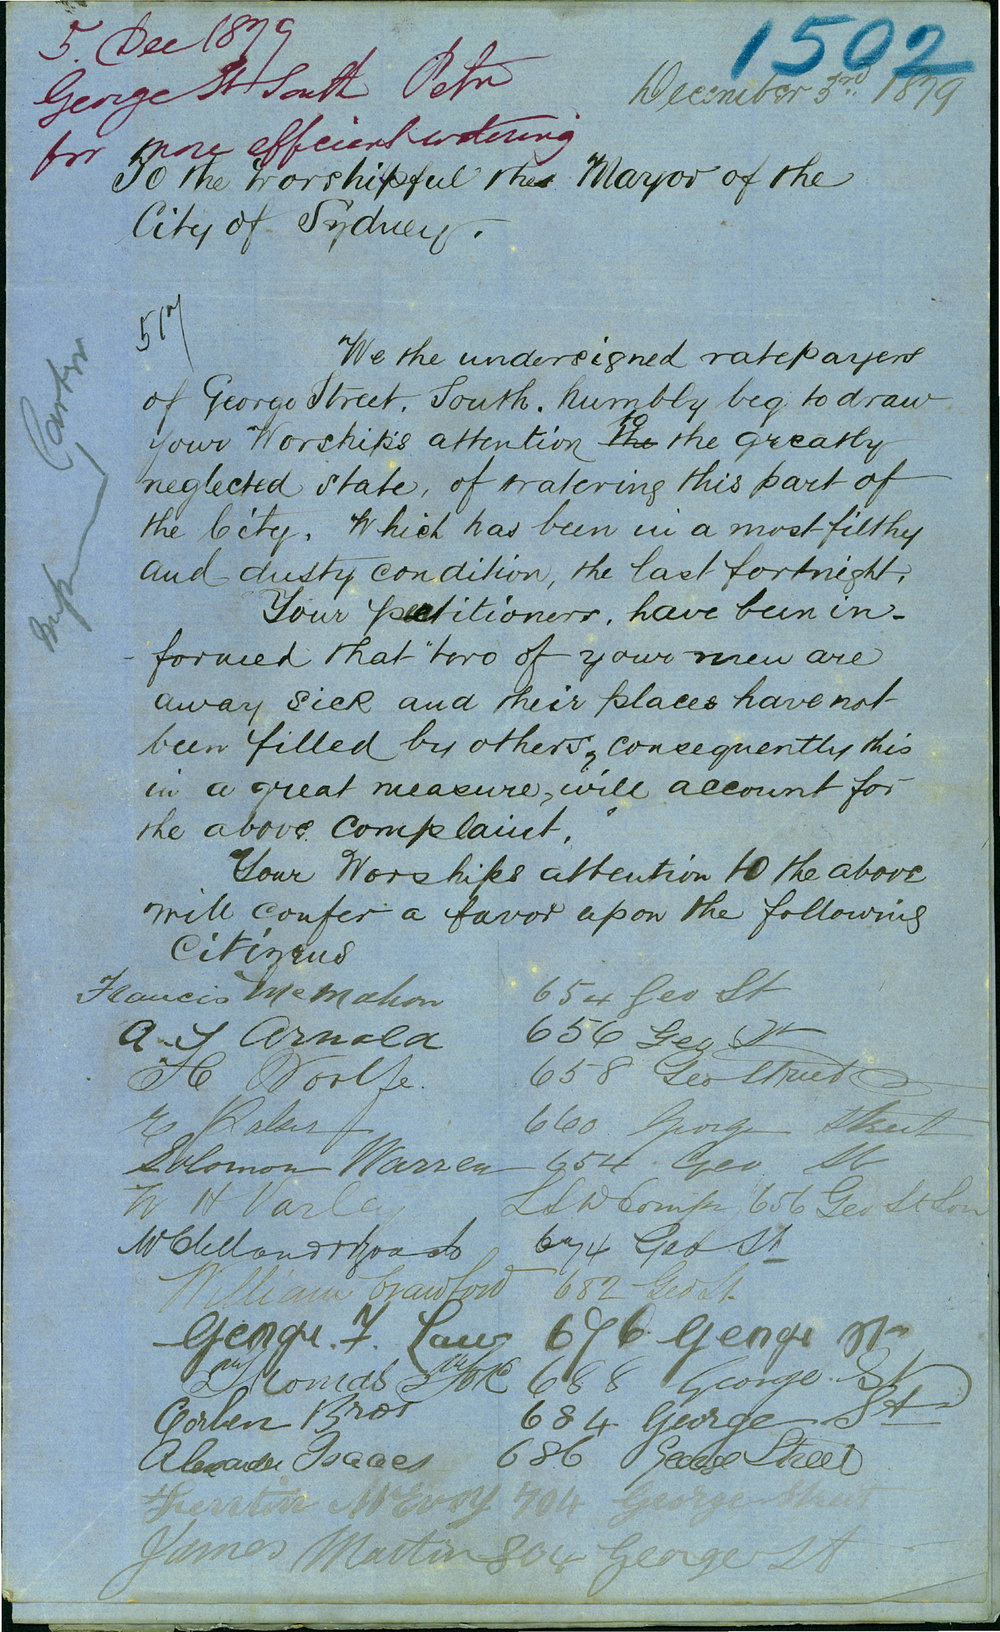 5. Dec 1879
George St South Petn
for more efficient watering
1502
December 3rd 1879
To the Worshipful the Mayor of the
City of Sydney.
517
We the undersigned ratepayers
of George Street. South. humbly beg to draw
your Worship's attention to the greatly
neglected state, of watering this part of
the City. Which has been in a most filthy
and dusty condition, the last fortnight.
Your petitioners, have been in-
formed that "two of your men are
away sick and their places have not
been filled by others, consequently this
in a great measure, will account for
the above complaint."
Your Worships attention to the above
will confer a favor upon the following
Citizens
Francis McMahon 654 Geo St
A. J Arnold 656 Geo St
H Woolfe. 658 Geo Street
660 George Street
Solomon Warren 654 Geo St
W H Varley 656 Geo St Sou
674 Geo St
William Crawford 682 Geo St.
George. F. Laws 676 George St
Thomas 688 George St
Bros 684 George St
Alexander Isaacs 686 George Street
McEvoy 704 George Street
James Martin 804 George St